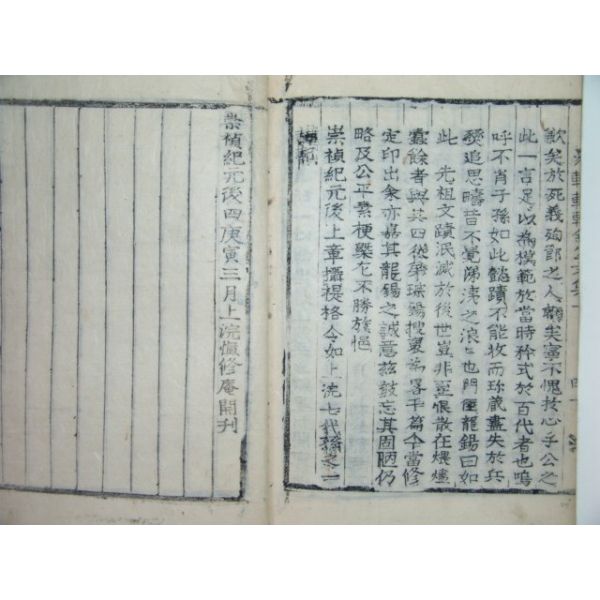 歉矣於死義殉節之人歸矣寧不愧於心乎公之
此一言足以為模範於當時矜式於百代者也嗚
呼不肖子孫如此懿蹟不能收而珍藏盡失於兵
燹追思疇昔不覺涕洟之浪也門侄龍錫曰如
此先祖文蹟泯滅於後世豈非豈恨散在煨燼
蠹餘者與其四從弟瑞錫搜裒為畧干篇今當修
定印出余亦嘉其龍錫之誠意玆敢忘其固陋仍
略及公平素梗槩在不勝於悒
崇禎紀元後上章攝提格令如上浣七代孫之一
謹記
崇禎紀元後四庚寅三月上浣愼修庵開刋